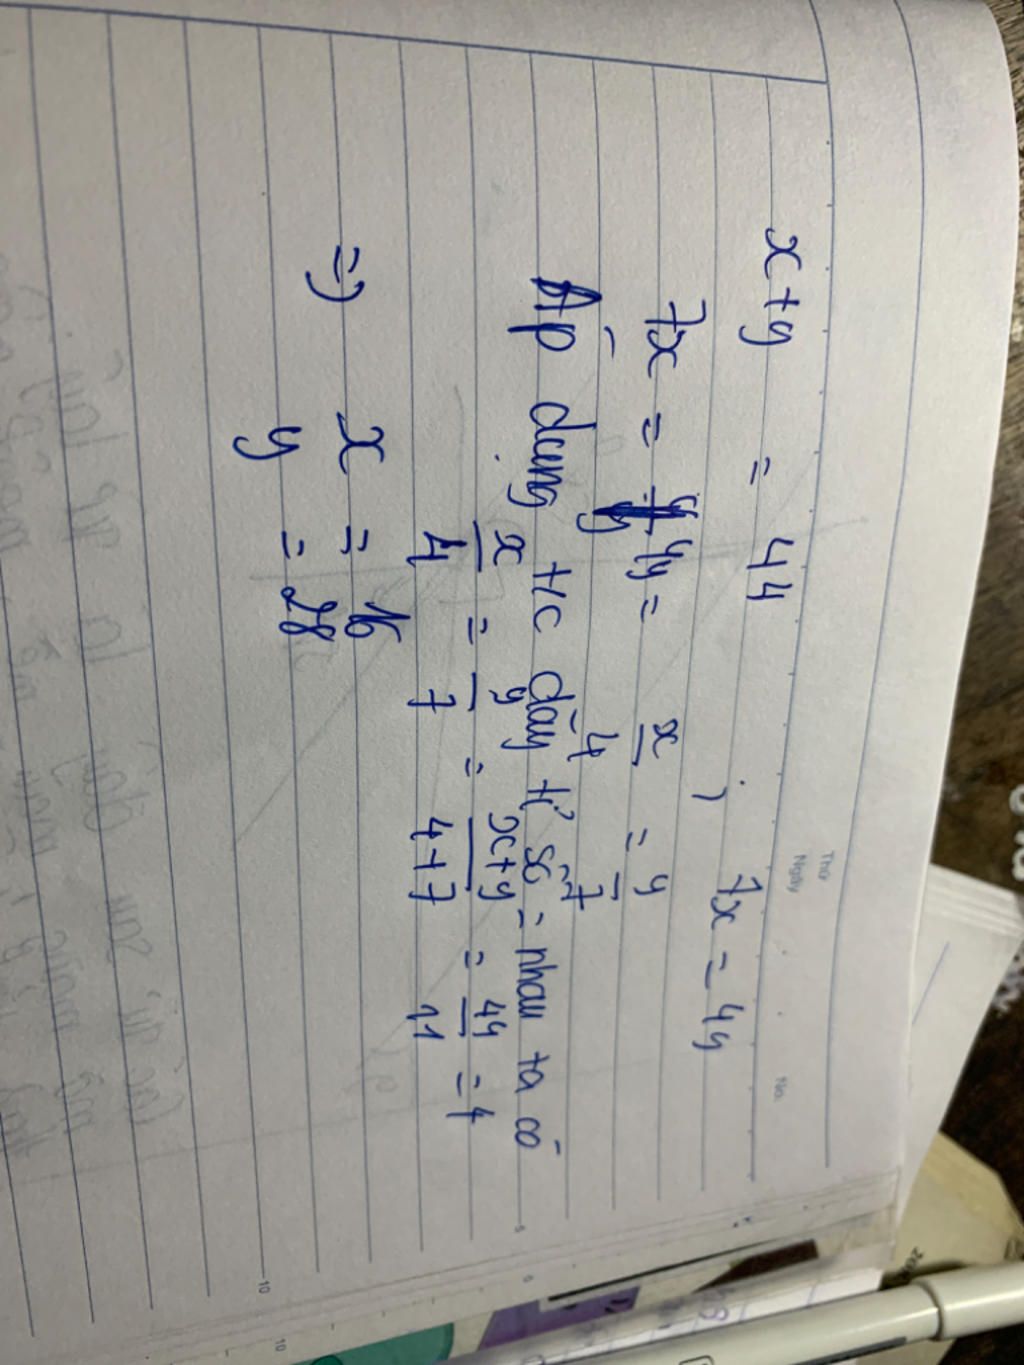 Thứ
Ngày
No.
x+y = 44 ; 7x = 4y
7x = 4y = x/4 = y/7
Áp dụng t/c dãy tỉ số = nhau ta có
x/4 = y/7 = x+y/4+7 = 44/11 = 4
=> x = 16
y = 28
5
10